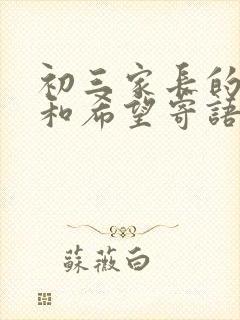 初三家長的
和希望寄語
蘇薇白